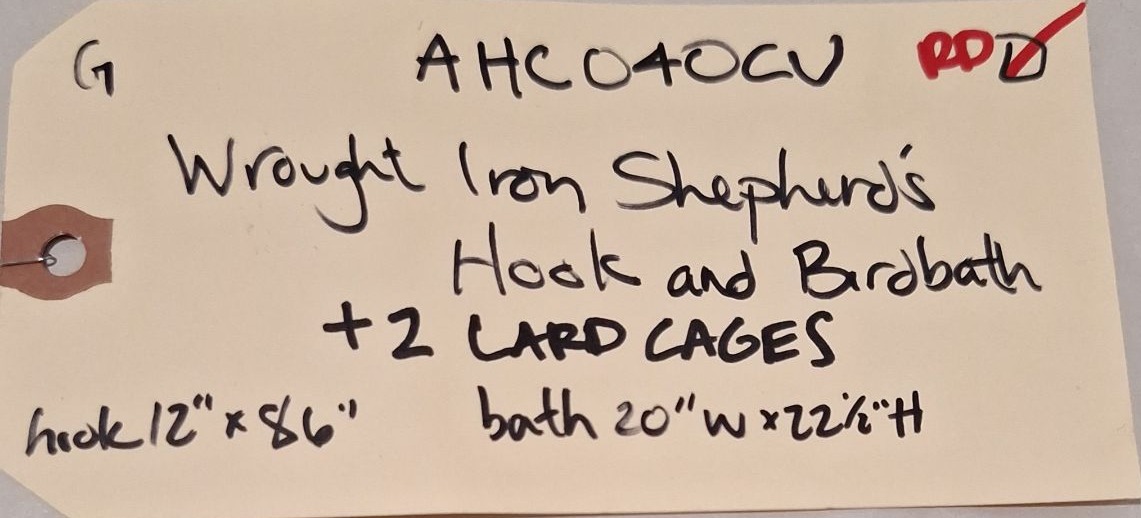 G AHC040CV RD D
Wrought Iron Shepherd's
Hook and Birdbath
+2 LARD CAGES
hook 12" x 86" bath 20" W x 22 1/2" H